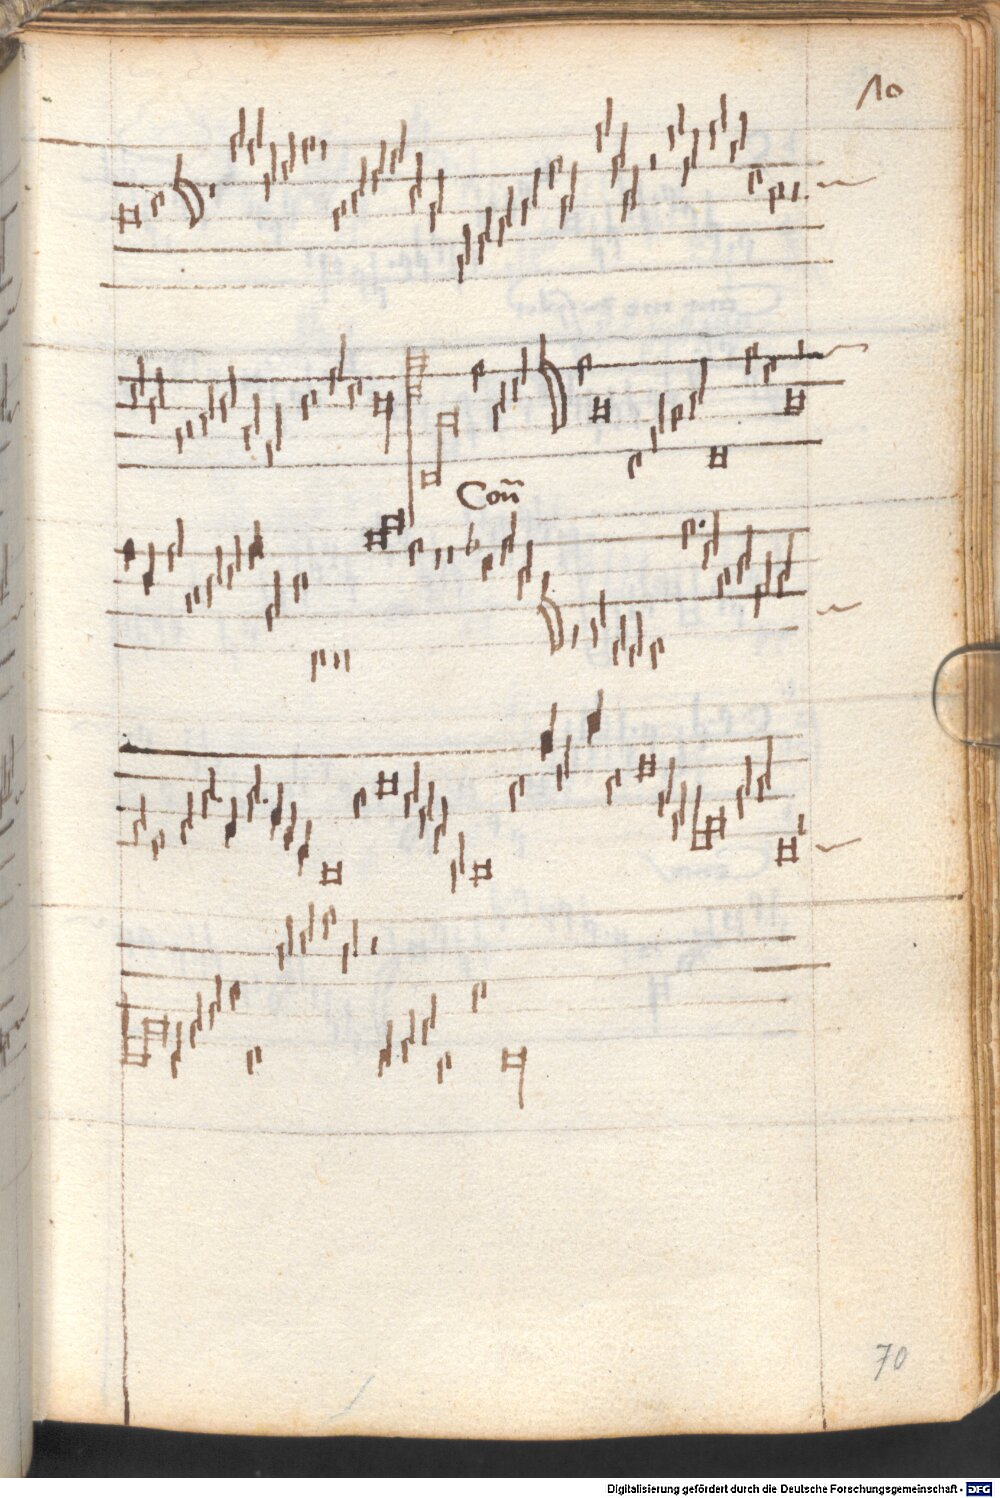 10
70
Digitalisierung gefördert durch die Deutsche Forschungsgemeinschaft - DFG